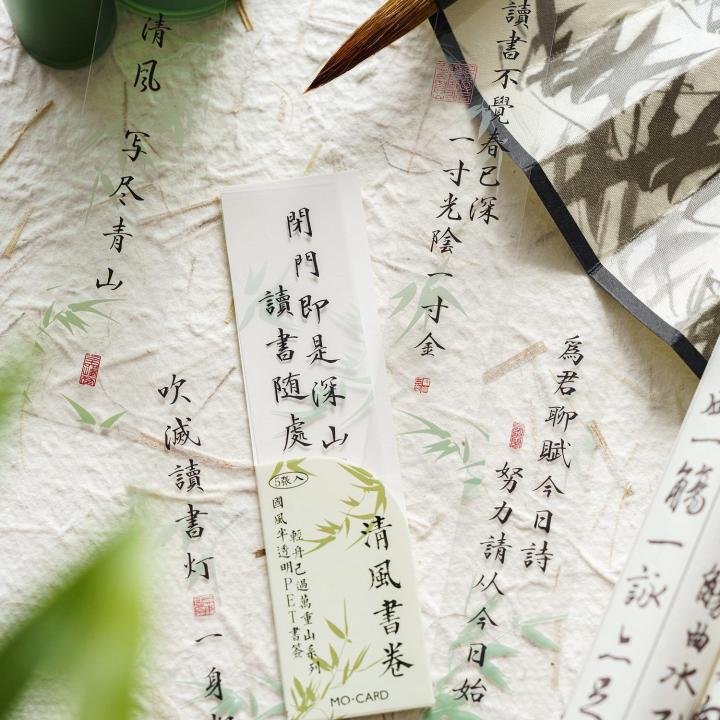 讀書不覺春已深
一寸光陰一寸金
清風
写尽青山
閉門即是深山
讀書随處
為君聊賦今日詩
努力請从今日始
吹滅讀書灯
一身
5張入
清風書卷
輕舟已過萬重山系列
國風半透明PET書簽
MO·CARD
一觴一詠
觴曲水